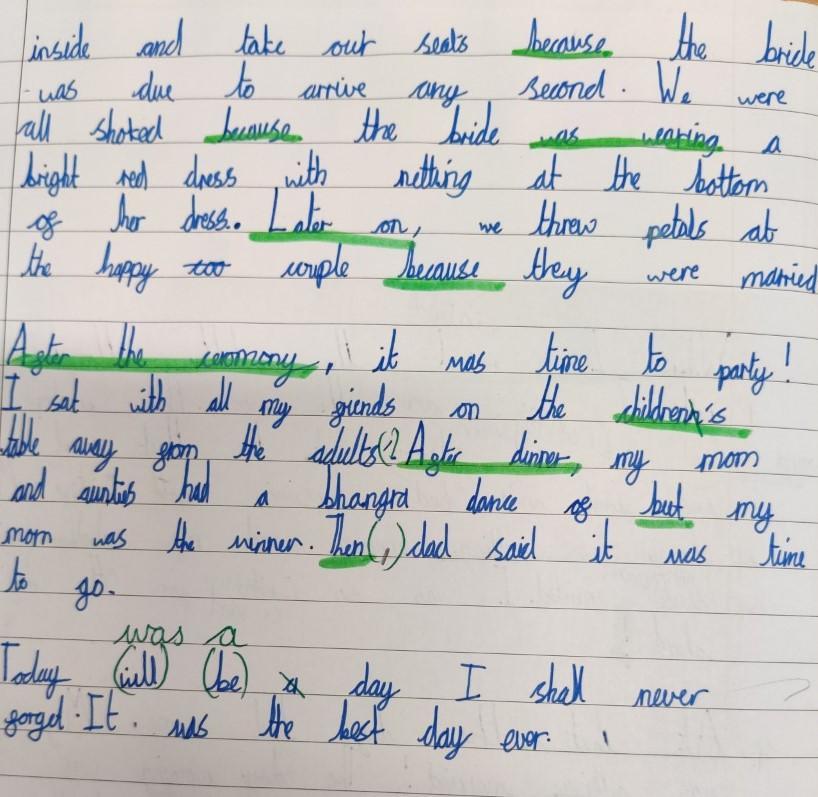 inside and take our seats because the bride
was due to arrive any second. We were
all shoked because the bride was wearing a
bright red dress with netting at the bottom
of her dress. Later on, we threw petals at
the happy too couple because they were married
After the ceromony, it was time to party!
I sat with all my friends on the children's
table away from the adults. After dinner, my mom
and aunties had a bhangra dance of but my
mom was the winner. Then (,) dad said it was time
to go.
was a
Today (will) (be) a day I shall never
forget. It was the best day ever.